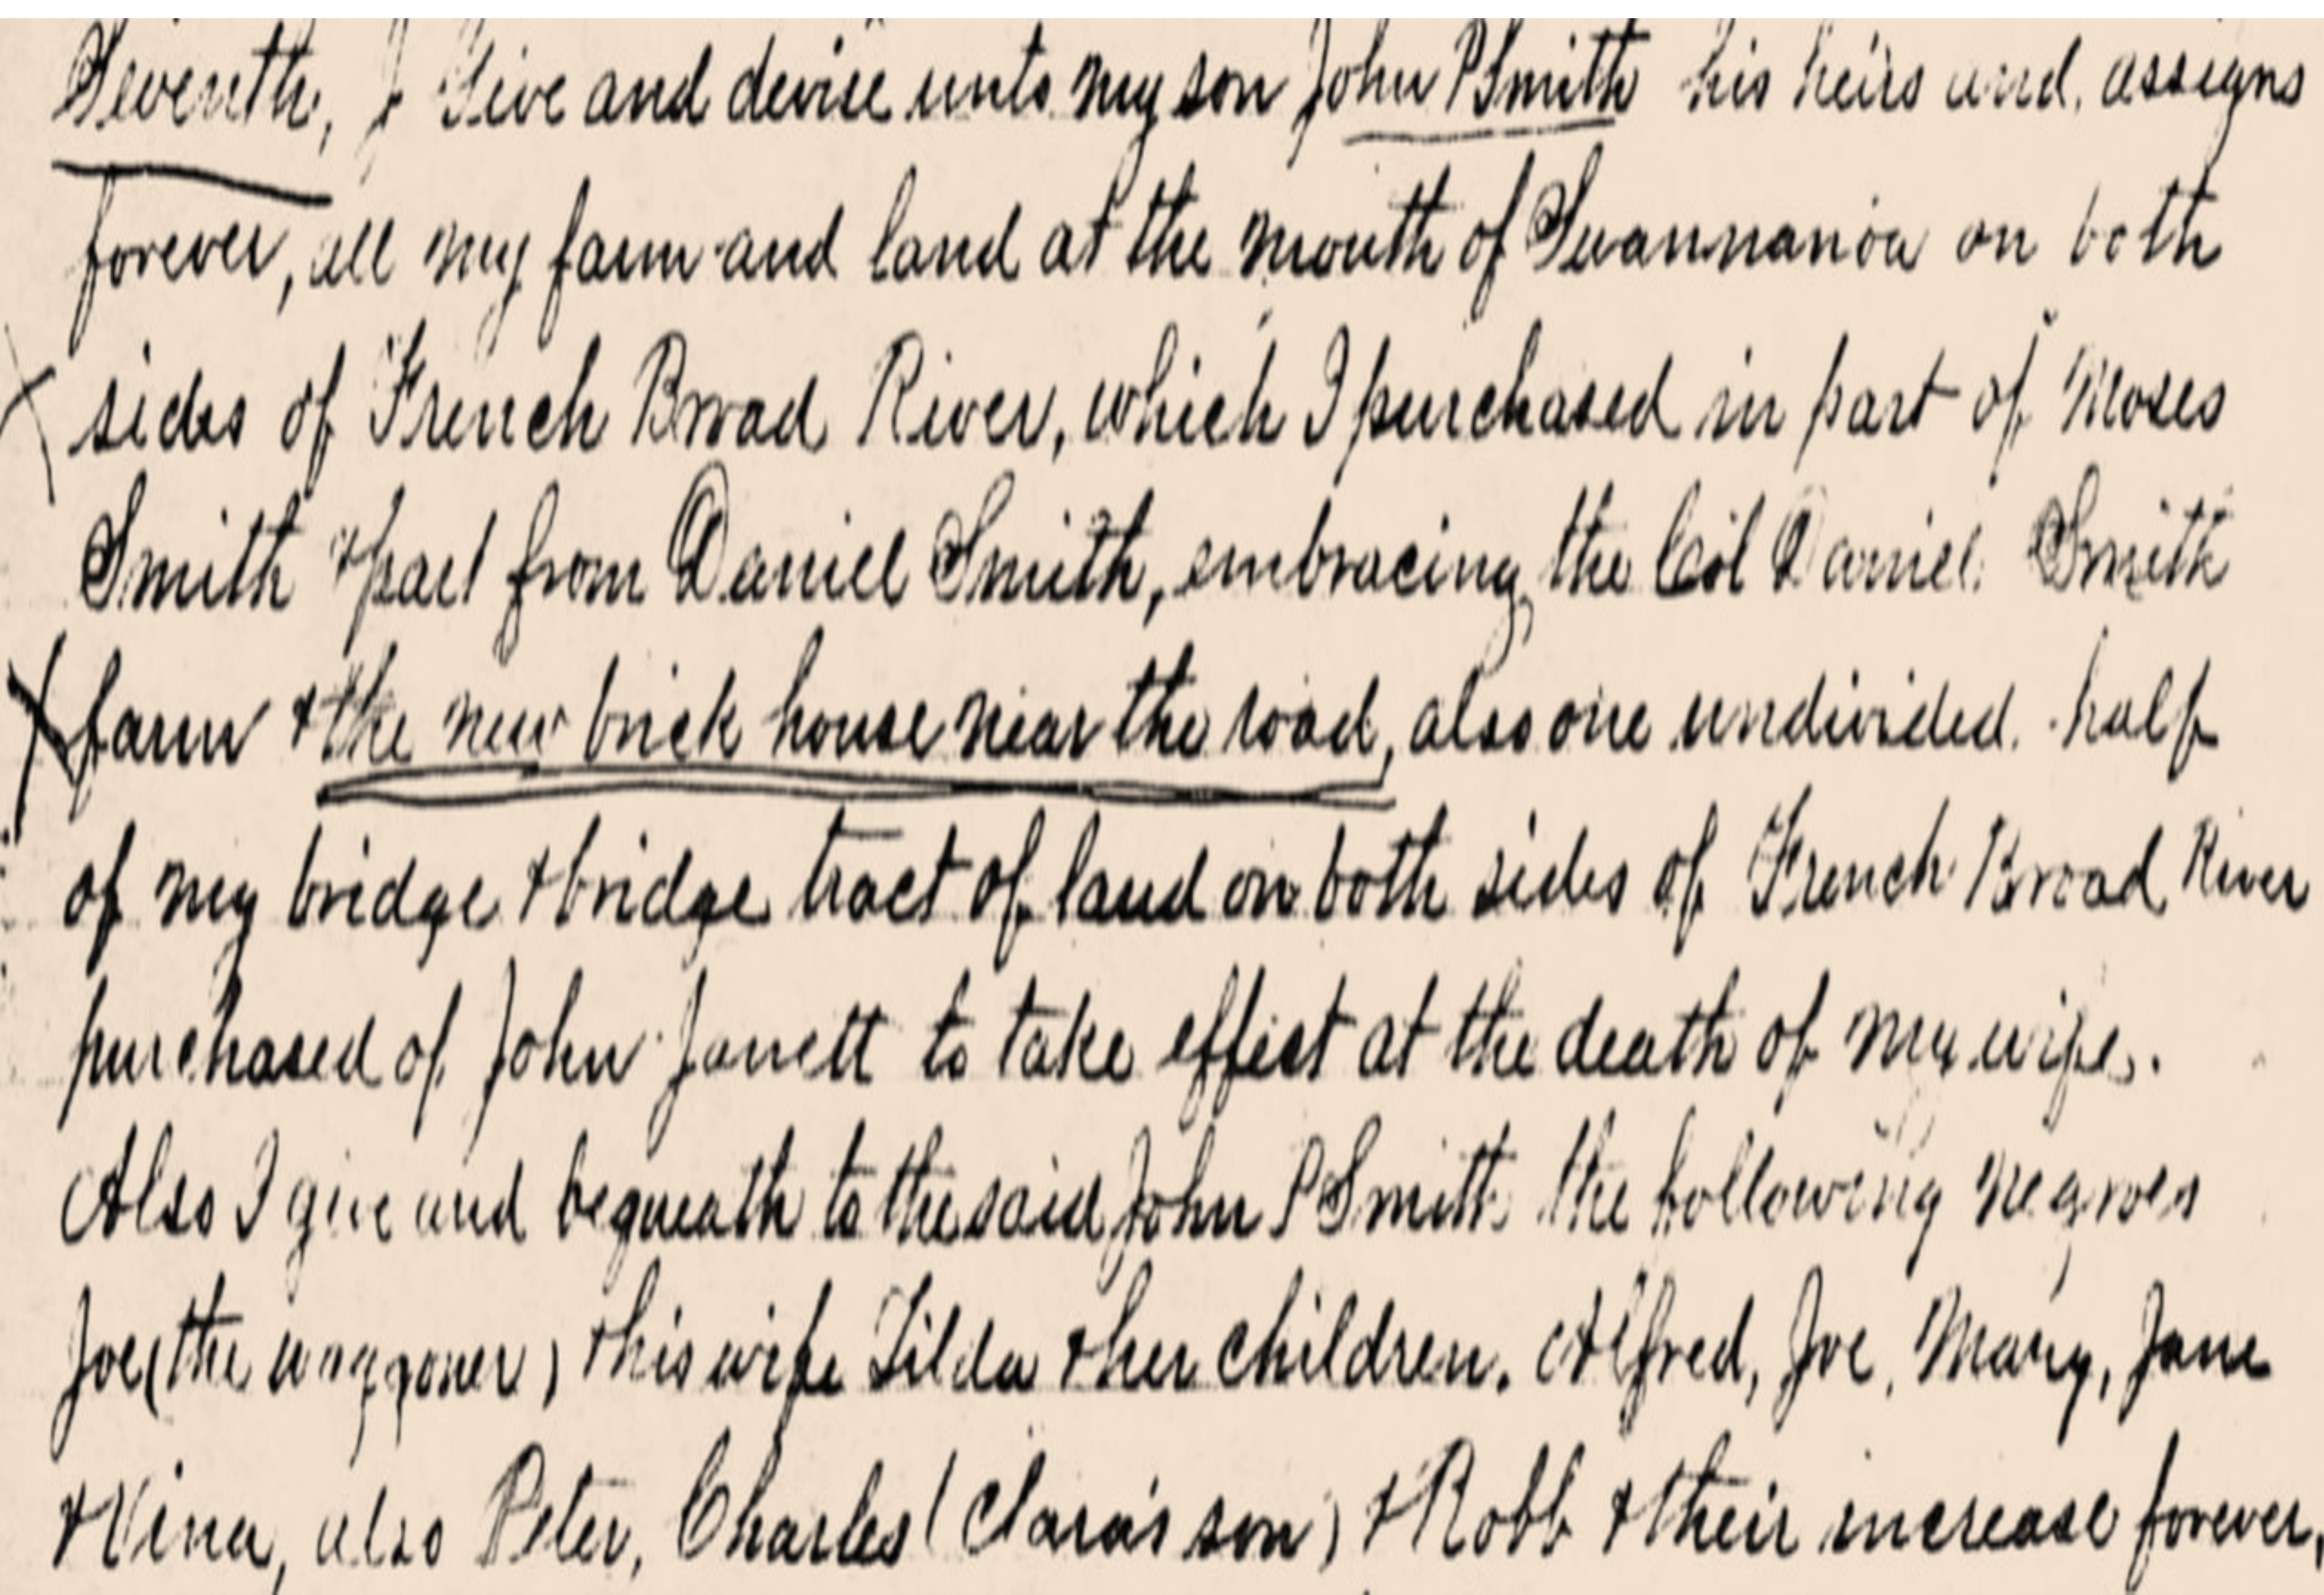 Seventh, I Give and devise unto my son John P Smith his heirs and assigns
forever, all my farm and land at the mouth of Swannanoa on both
sides of French Broad River, which I purchased in part of Moses
Smith & part from Daniel Smith, embracing the Col Daniel Smith
farm & the new brick house near the road, also one undivided half
of my bridge & bridge tract of land on both sides of French Broad River
purchased of John Jarrett to take effect at the death of my wife.
Also I give and bequeath to the said John P Smith the following negroes
Joe (the waggoner) & his wife Tilda & her children. Alfred, Joe, Mary, Jane
& Vina, also Peter, Charles (Clara's son) & Robb & their increase forever,